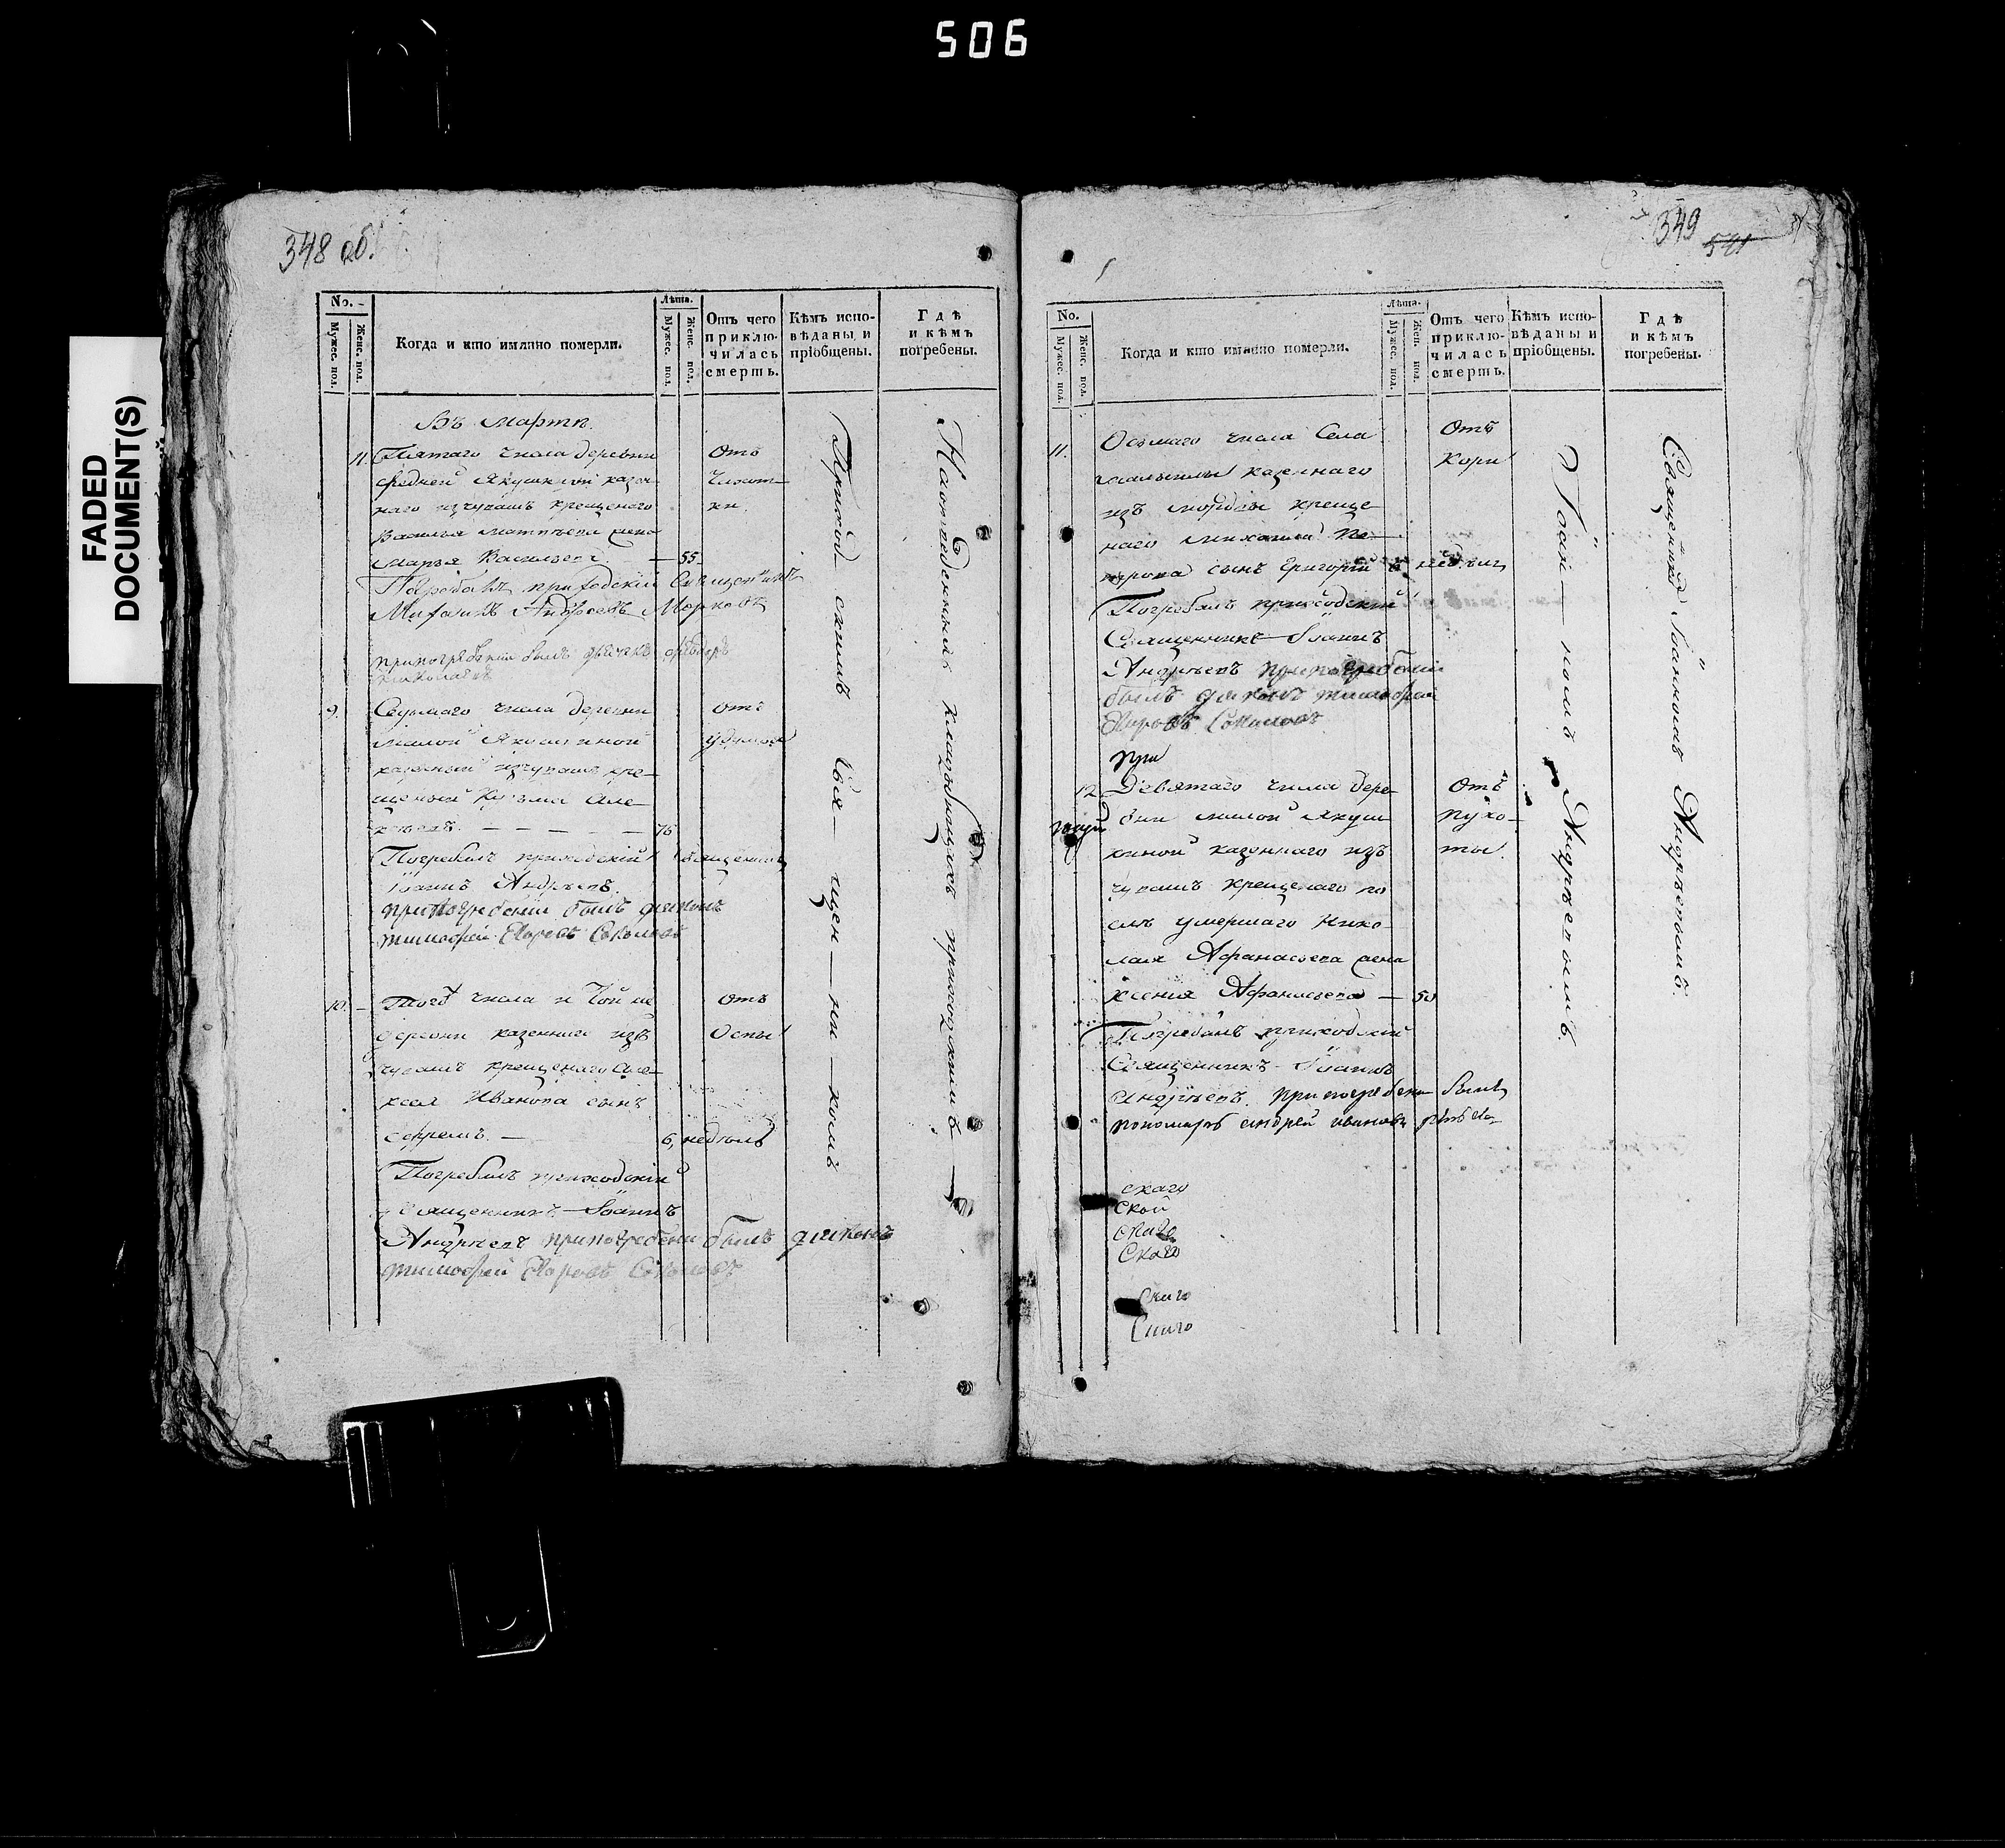 506
FADED
DOCUMENT(S)
348 об.
No.
Мужес. пол.
Женс. пол.
Когда и кто имянно померли.
Лѣта.
Мужес. пол.
Женс. пол.
Отъ чего
приклю-
чилась
смерть.
Кѣмъ испо-
вѣданы и
пріобщены.
Гдѣ
и кѣмъ
погребены.
Въ Мартѣ.
11. Пятаго числа деревни
средней Якушкиной казен-
наго изчувашъ крещенаго
Василья Матвѣева жена
Марья Васильева — 55
Отъ
Чихот-
ки.
Погребалъ приходскій Священникъ
Михаилъ Андреевъ Марковъ
припогрѣбеніи былъ дьячекъ федоръ
николаевъ
9. Седьмаго числа деревни
малой Якушкиной
казенный изчувашъ кре-
щеный Кузьма Але-
ксѣевъ. — 76
Отъ
Погребалъ приходскій Священникъ
Іоаннъ Андрѣевъ.
припогребеніи былъ диаконъ
тимофей Егоровъ Соколовъ
10. Того числа и той же
деревни казеннаго изъ
чувашъ крещенаго Але-
ксея Иванова сынъ
Ефремъ. — 6, недѣль
Отъ
Оспы
Погребалъ приходскій
священникъ Іоаннъ
Андрѣевъ припогребени былъ диаконъ
тимофей Егоровъ Соколовъ
Приход скимъ Свя — щен — ни — комъ
На отведенныхъ кладбищахъ приходскимъ
349
541
No.
Мужес. пол.
Женс. пол.
Когда и кто имянно померли.
Лѣта.
Мужес. пол.
Женс. пол.
Отъ чего
приклю-
чилась
смерть.
Кѣмъ испо-
вѣданы и
пріобщены.
Гдѣ
и кѣмъ
погребены.
11. Осьмаго числа Села
казеннаго
изъ мордвы креще
наго Михаила Пе-
трова сынъ Григорій
Отъ
Кори
Погребалъ приходскій
Священникъ Іоаннъ
Андрѣевъ припогребеніи
былъ диаконъ тимофей
Егоровъ Соколовъ
при
12. Девятаго числа дере-
вни малой Якуш
киной казеннаго изъ
чувашъ крещенаго по
слѣ умершаго Нико-
лая Афанасьева жена
Ксения Афанасьева — 50
Отъ
Пухо-
ты.
Погребалъ приходскій
Священникъ Іоаннъ
Андрѣевъ. припогребени былъ
пономарь андрей ивановъ
скаго
ской
скаго
Скаго
Скаго
Скаго
Іоан — номъ Андрѣевымъ.
Священникомъ Іоанномъ Андрѣевымъ.